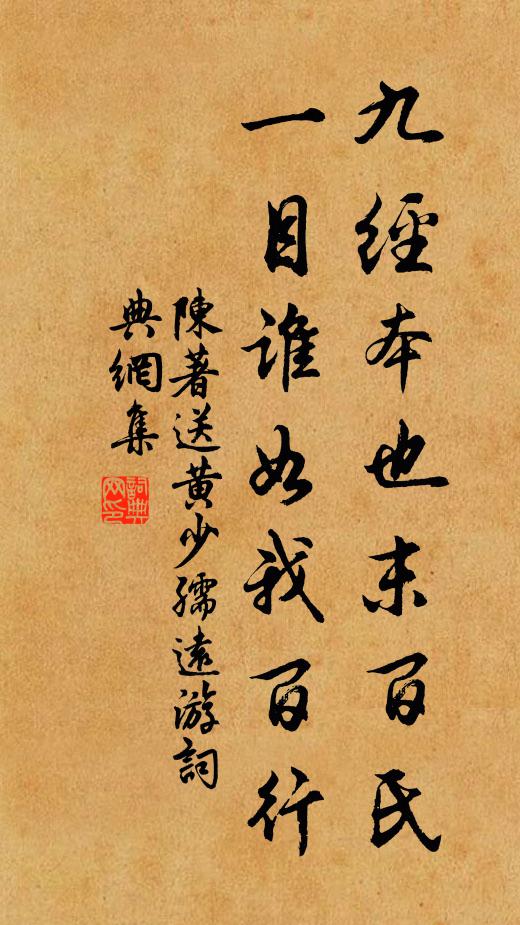 九經本也末百氏
一目誰如我百行
陳著送黃少孺遠游詞
典網集
詞典網印